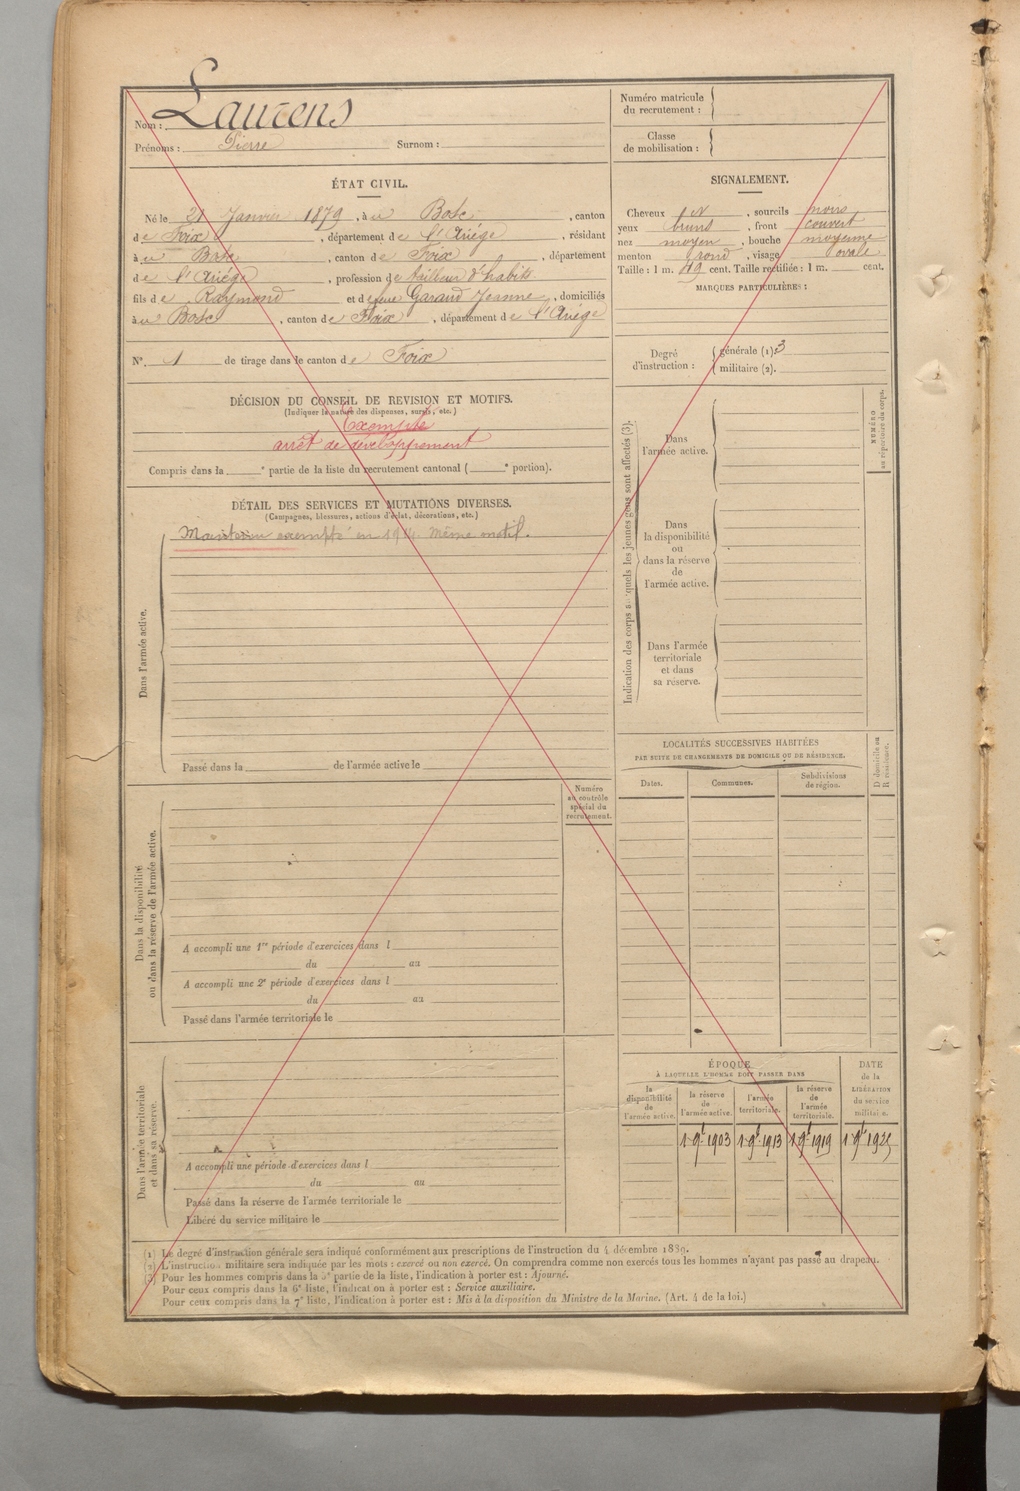 Nom : Laurens
Prénoms : Pierre Surnom :
Numéro matricule
du recrutement :
Classe
de mobilisation :
ÉTAT CIVIL.
Né le 21 Janvier 1879, à u Bosc, canton
de Foix, département de l'Ariége, résidant
à u Bosc, canton de Foix, département
de l'Ariége, profession de tailleur d'habits
fils de Raymond et de feue Garaud Jeanne, domiciliés
à u Bosc, canton de Foix, département de l'Ariége
N° 1 de tirage dans le canton de Foix
SIGNALEMENT.
Cheveux , sourcils noirs
yeux bruns, front couvert
nez moyen, bouche moyenne
menton rond, visage ovale
Taille : 1 m. 49 cent. Taille rectifiée : 1 m. cent.
MARQUES PARTICULIÈRES :
Degré
d'instruction :
générale (1). 3
militaire (2).
DÉCISION DU CONSEIL DE REVISION ET MOTIFS.
(Indiquer la nature des dispenses, sursis, etc.)
Exempté
arrêt de développement
Compris dans la e partie de la liste du recrutement cantonal ( e portion).
DÉTAIL DES SERVICES ET MUTATIONS DIVERSES.
(Campagnes, blessures, actions d'éclat, décorations, etc.)
Maintenu exempté en 1914. même motif.
Dans l'armée active.
Passé dans la de l'armée active le
Indication des corps auxquels les jeunes gens sont affectés (3).
NUMÉRO
au répertoire du corps.
Dans
l'armée active.
Dans
la disponibilité
ou
dans la réserve
de
l'armée active.
Dans l'armée
territoriale
et dans
sa réserve.
LOCALITÉS SUCCESSIVES HABITÉES
PAR SUITE DE CHANGEMENTS DE DOMICILE OU DE RÉSIDENCE.
Dates.
Communes.
Subdivisions
de région.
D domicile ou
R résidence.
Numéro
au contrôle
spécial du
recrutement.
Dans la disponibilité
ou dans la réserve de l'armée active.
A accompli une 1re période d'exercices dans l
du au
A accompli une 2e période d'exercices dans l
du au
Passé dans l'armée territoriale le
Dans l'armée territoriale
et dans sa réserve.
A accompli une période d'exercices dans l
du au
Passé dans la réserve de l'armée territoriale le
Libéré du service militaire le
ÉPOQUE
À LAQUELLE L'HOMME DOIT PASSER DANS
la
disponibilité
de
l'armée active.
la réserve
de
l'armée active.
l'armée
territoriale.
la réserve
de
l'armée
territoriale.
DATE
de la
LIBÉRATION
du service
militaire.
1 9bre 1903 1 9bre 1913 1 9bre 1919 1 9bre 1925
(1) Le degré d'instruction générale sera indiqué conformément aux prescriptions de l'instruction du 4 décembre 1889.
(2) L'instruction militaire sera indiquée par les mots : exercé ou non exercé. On comprendra comme non exercés tous les hommes n'ayant pas passé au drapeau.
(3) Pour les hommes compris dans la 5e partie de la liste, l'indication à porter est : Ajourné.
Pour ceux compris dans la 6e liste, l'indication à porter est : Service auxiliaire.
Pour ceux compris dans la 7e liste, l'indication à porter est : Mis à la disposition du Ministre de la Marine. (Art. 4 de la loi.)